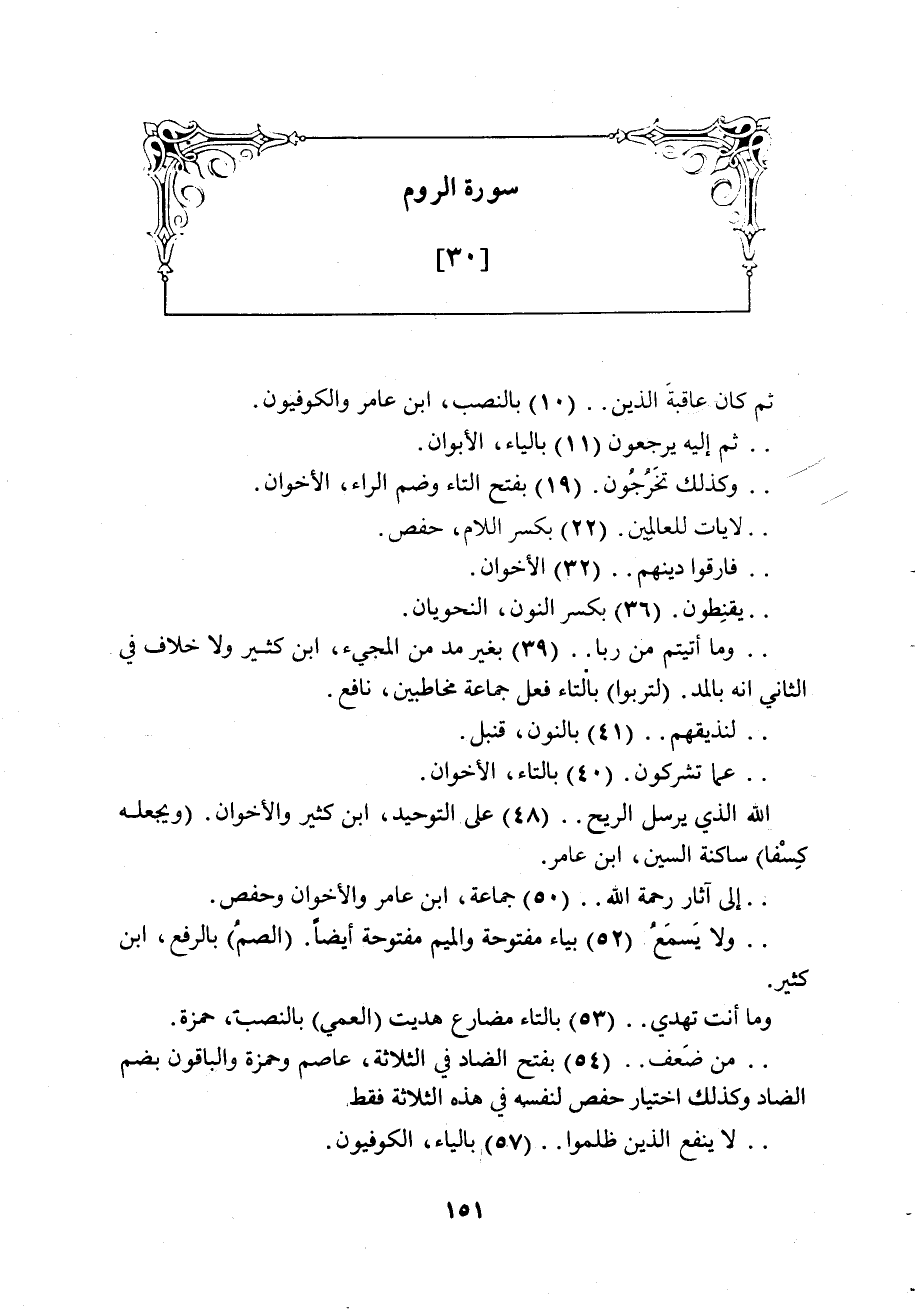 سورة الروم
[٣٠]
ثم كان عاقبةَ الذين. . (١٠) بالنصب، ابن عامر والكوفيون.
. . ثم إليه يرجعون (١١) بالياء، الأبوان.
. . وكذلك تَخَرُجُون. (١٩) بفتح التاء وضم الراء، الأخوان.
. . لايات للعالمِين. (٢٢) بكسر اللام، حفص.
. . فارقوا دينهم. . (٣٢) الأخوان.
. . يقنِطون. (٣٦) بكسر النون، النحويان.
. . وما أتيتم من ربا. . (٣٩) بغير مد من المجيء، ابن كثير ولا خلاف في
الثاني انه بالمد. (لتربوا) بالتاء فعل جماعة مخاطبين، نافع.
. . لنذيقهم. . (٤١) بالنون، قنبل.
. . عما تشركون. (٤٠) بالتاء، الأخوان.
الله الذي يرسل الريح. . (٤٨) على التوحيد، ابن كثير والأخوان. (ويجعله
كِسْفا) ساكنة السين، ابن عامر.
. . إلى آثار رحمة الله. . (٥٠) جماعة، ابن عامر والأخوان وحفص.
. . ولا يَسمَعُ (٥٢) بياء مفتوحة والميم مفتوحة أيضاً. (الصمُ) بالرفع، ابن
كثير.
وما أنت تهدي. . (٥٣) بالتاء مضارع هديت (العمي) بالنصب، حمزة.
. . من ضَعف. . (٥٤) بفتح الضاد في الثلاثة، عاصم وحمزة والباقون بضم
الضاد وكذلك اختيار حفص لنفسه في هذه الثلاثة فقط.
. . لا ينفع الذين ظلموا. . (٥٧) بالياء، الكوفيون.
١٥١